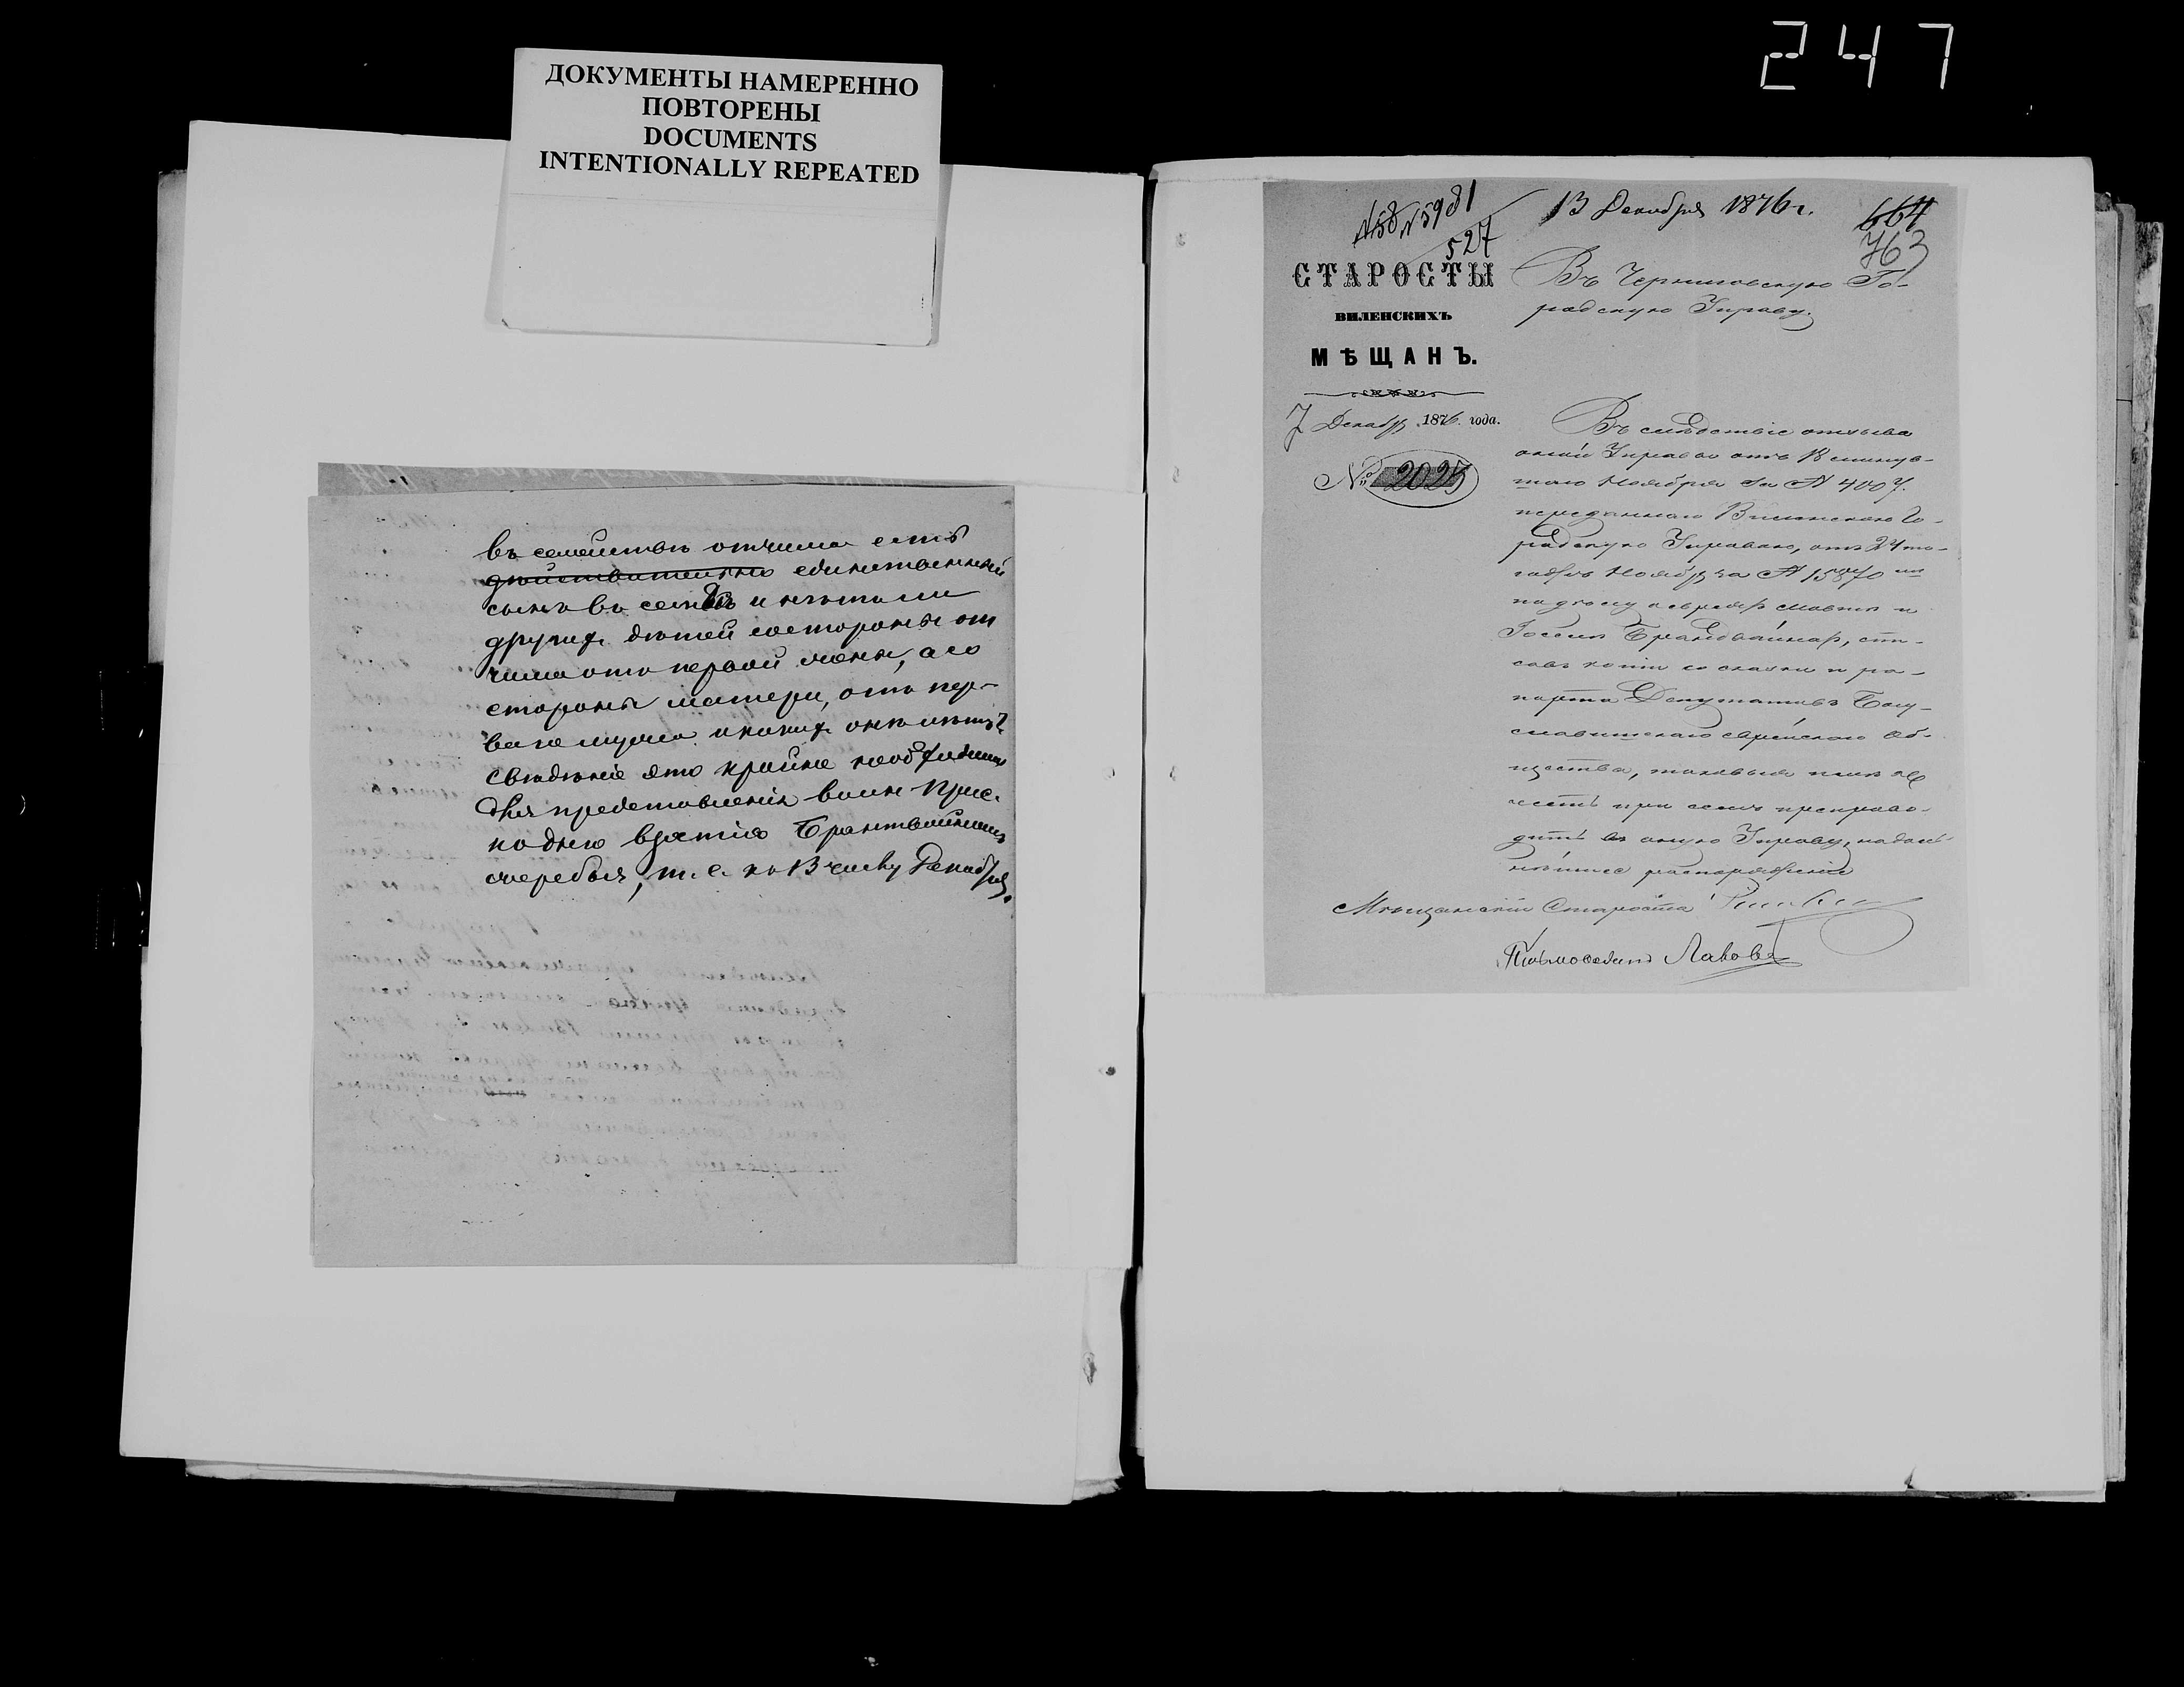 247
ДОКУМЕНТЫ НАМЕРЕННО
ПОВТОРЕНЫ
DOCUMENTS
INTENTIONALLY REPEATED
въ семействѣ отчима есть
дѣйствительно единственный
сынъ въ семьѣ и нѣтъ ли
другихъ дѣтей со стороны от
чима отъ первой жены, а со
стороны матери, отъ пер-
ваго мужа и какихъ онъ лѣтъ?
свѣдѣніе это крайне необходимо
для представленія воин. Прис.
ко дню взятія Брантвайномъ
жеребья, т. е. къ 13 числу Декабря.
№58 №5981
527
13 Декабря 1876 г.
664
763
СТАРОСТЫ
ВИЛЕНСКИХЪ
МѢЩАНЪ.
7 Декабр 1876 года.
№ 2025
Въ Черниговскую Го-
родскую Управу.
Въ слѣдствіе отзыва
оной Управы отъ 13 минув-
шаго Ноября за № 4007.
переданнаго Виленскою Го-
родскою Управою, отъ 24 то-
го Ноябр за № 15870
и
Брандвайнар, спи-
савъ копіи со сказки и ра-
порта Депутатовъ
еврейскаго Об-
щества, таковыя имѣю
честь при семъ препрово-
дить въ оную Управу, на даль-
нѣйшее распоряженіе
Мѣщанскій Староста
Письмоводит Лавовъ